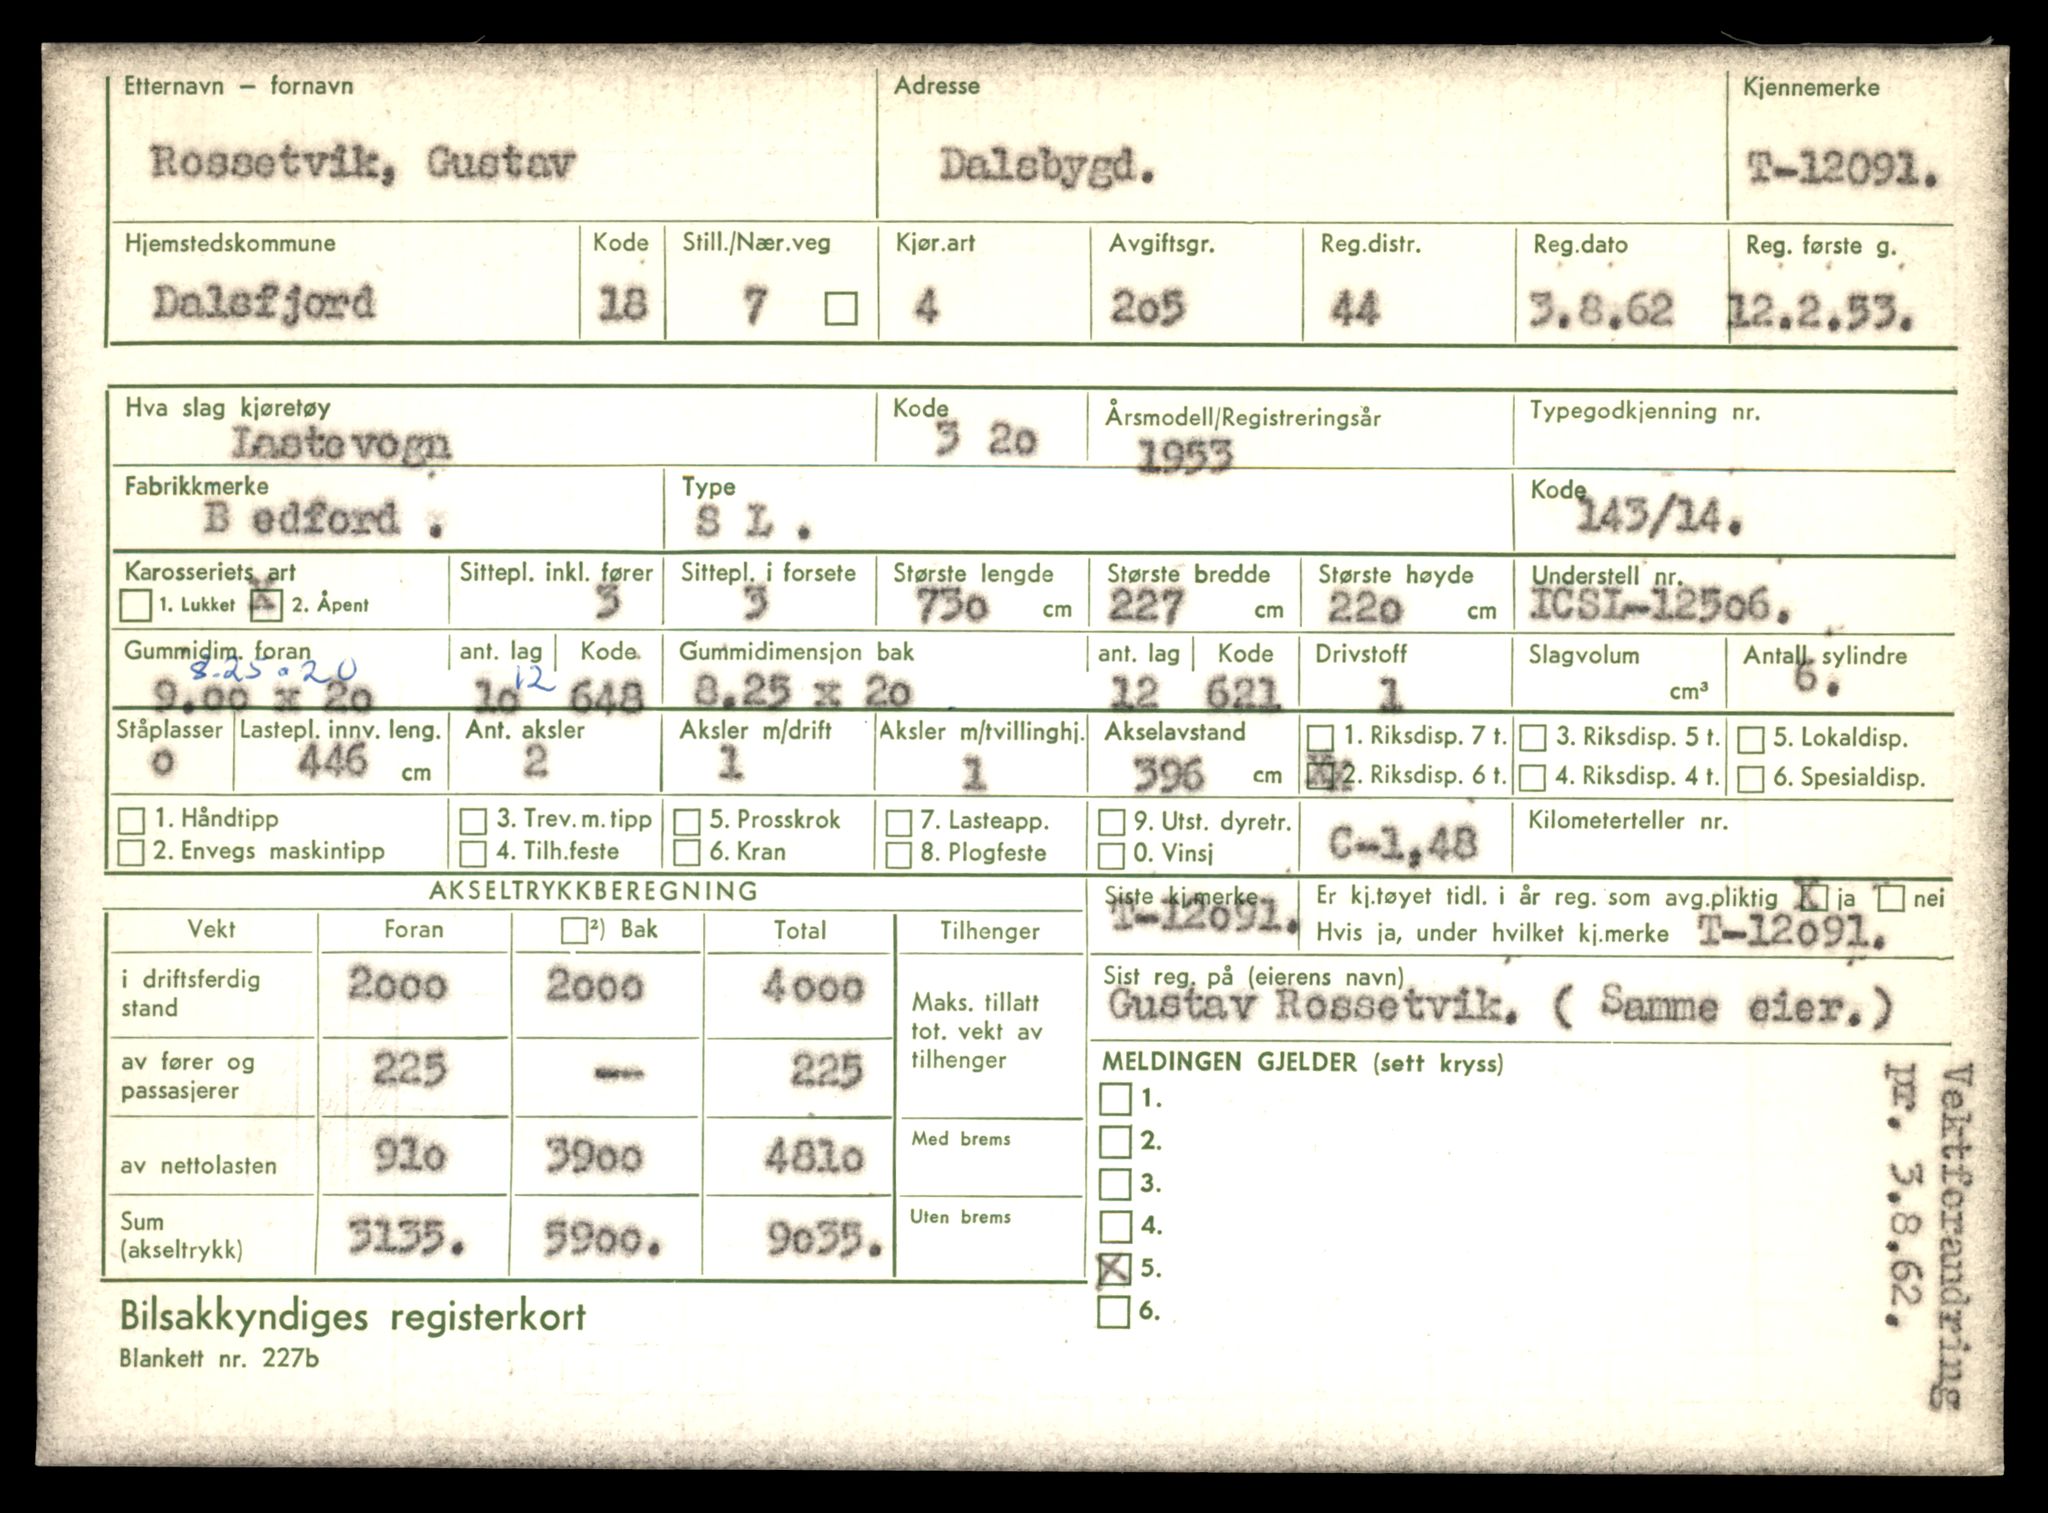 Etternavn – fornavn Adresse Kjennemerke
Rossetvik, Gustav Dalsbygd. T-12091.
Hjemstedskommune Kode Still./Nær.veg Kjør.art Avgiftsgr. Reg.distr. Reg.dato Reg. første g.
Dalsfjord 18 7 4 205 44 3.8.62 12.2.53.
Hva slag kjøretøy Kode Årsmodell/Registreringsår Typegodkjenning nr.
Lastevogn 3 20 1953
Fabrikkmerke Type Kode
B edford . S L . 143/14.
Karosseriets art Sittepl. inkl. fører Sittepl. i forsete Største lengde Største bredde Største høyde Understell nr.
1. Lukket X 2. Åpent 3 3 730 cm 227 cm 220 cm ICSL-12506.
Gummidim. foran ant. lag Kode Gummidimensjon bak ant. lag Kode Drivstoff Slagvolum Antall sylindre
8.25.20 12
9.00 x 20 10 648 8.25 x 20 12 621 1 cm³ 6.
Ståplasser Lastepl. innv. leng. Ant. aksler Aksler m/drift Aksler m/tvillinghj. Akselavstand 1. Riksdisp. 7 t. 3. Riksdisp. 5 t. 5. Lokaldisp.
0 446 cm 2 1 1 396 cm X 2. Riksdisp. 6 t. 4. Riksdisp. 4 t. 6. Spesialdisp.
1. Håndtipp 3. Trev. m. tipp 5. Prosskrok 7. Lasteapp. 9. Utst. dyretr. C-1,48 Kilometerteller nr.
2. Envegs maskintipp 4. Tilh.feste 6. Kran 8. Plogfeste 0. Vinsj
AKSELTRYKKBEREGNING
Vekt Foran ²) Bak Total Tilhenger
i driftsferdig stand 2000 2000 4000
Maks. tillatt
tot. vekt av
tilhenger
av fører og passasjerer 225 — 225
av nettolasten 910 3900 4810 Med brems
Sum (akseltrykk) 3135. 5900. 9035. Uten brems
Siste kj.merke Er kj.tøyet tidl. i år reg. som avg.pliktig X ja nei
T-12091. Hvis ja, under hvilket kj.merke T-12091.
Sist reg. på (eierens navn)
Gustav Rossetvik. ( Samme eier.)
MELDINGEN GJELDER (sett kryss)
1.
2.
3.
4.
X 5.
6.
Vektforandring
pr. 3.8.62.
Bilsakkyndiges registerkort
Blankett nr. 227b